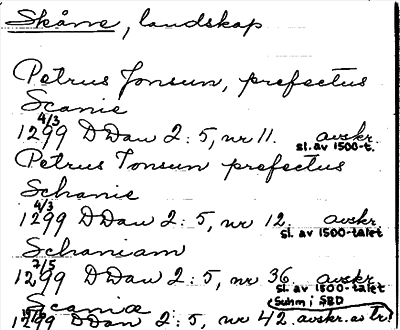 Skåne, landskap
Petrus Jonsun, prefectus
Scanie
4/3
1299 DDan 2:5, nr 11. avskr.
sl. av 1500-t.
Petrus Jonsun prefectus
Schanie
4/3
1299 DDan 2:5, nr 12. avskr.
sl. av 1500-talet
Schaniam
7/5
1299 DDan 2:5, nr 36. avskr.
sl. av 1500-talet
Scaniæ (Suhm i SBD
1299 DDan 2:5, nr 42. avskr. av tr.!